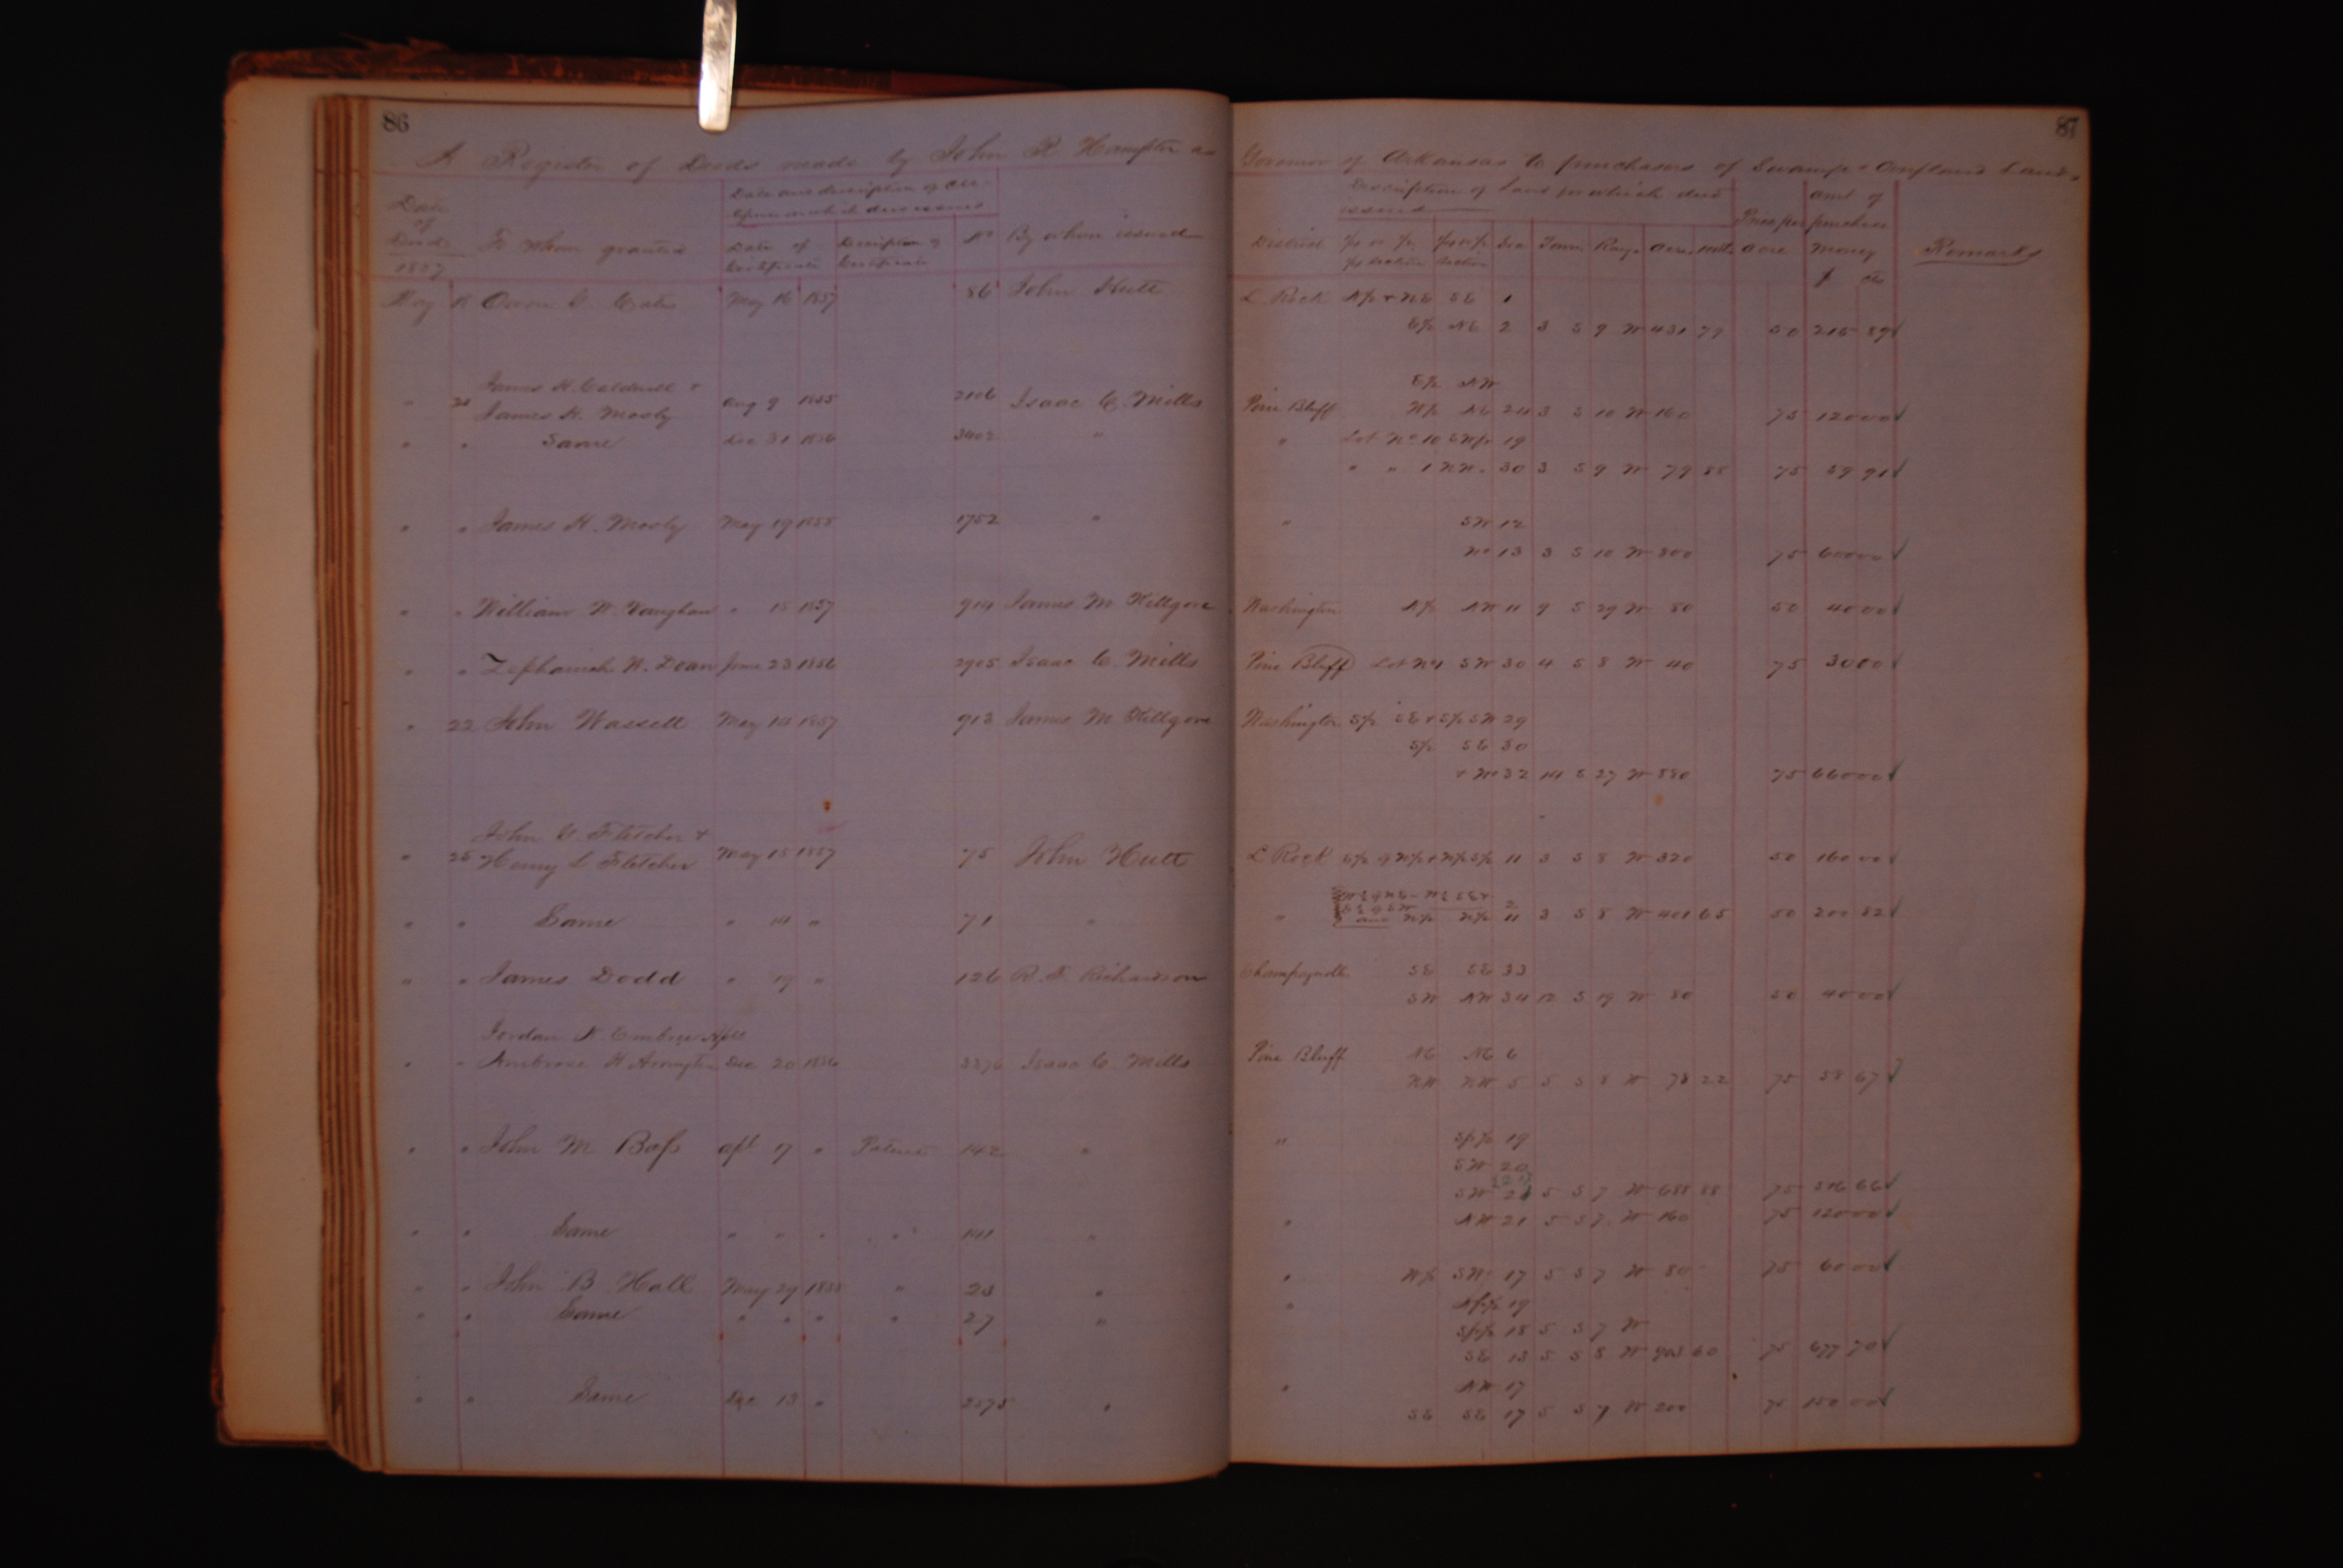 86
A Register of Deeds made by John R Hampton as
Date
of
Deed
1857
To whom granted
Date and description of cer-
upon which deed issued
Date of
Certificate
Description of
Certificate
No
By whom issued
May Owen C. May 16 1857 86 John Hutt
James H. Caldwell &
" James H. Mosby Aug 9 1855 2106 Isaac C. Mills
" " Same Dec 31 1856 3402 "
" " James H. Mosby May 19 1855 1752 "
" " William W. Vaughan " 15 1857 914 James M Killgore
" " Zephaniah W. Dean June 23 1856 2905 Isaac C. Mills
" 22 John Wassell May 14 1857 913 James M Killgore
John G. Fletcher &
" 25 Henry L Fletcher May 15 1857 75 John Hutt
" " Same " 14 " 71 "
" " James Dodd " 19 " 126 R. F. Richardson
Jordan N. Embree
" " Ambrose H. Dec 20 1856 3376 Isaac C. Mills
" " John M Bass apl 17 " Patent 142 "
" " Same " " " " 141 "
" " John B. Hall May 29 1855 " 23 "
" " Same " " " " 27 "
" " Same Dec 13 " 2575 "
87
Governor of Arkansas to purchasers of Swamp & Overflowed Lands
Description of land for which deed
issued
District
½ or ¼
¼ section
¼ or ½
Section
Sec Town Range Acres Hdths
Price per
acre
amt of
purchase
money
$ cts
Remarks
L Rock N½ & SE SE 1
E½ NE 2 3 S 9 W 431 79 50 215 89
E½ NW
Pine Bluff W½ NE 24 3 S 10 W 160 75 120 00
" Lot No 10 SW¼ 19
" " 1 NW. 30 3 S 9 W 79 88 75 59 91
" SW 12
13 3 S 10 W 800 75 600 00
Washington N½ NW 11 9 S 29 W 80 50 40 00
Pine Bluff Lot No 1 SW 30 4 S 8 W 40 75 30 00
Washington S½ SE & S½ SW 29
S½ SE 30
& 32 14 S 27 W 880 75 660 00
L Rock S½ of N½ & N½ S½ 11 3 S 8 W 320 50 160 00
2
" and N½ N½ 11 3 S 8 W 401 65 50 200 82
Champagnolle SE SE 33
SW NW 34 12 S 19 W 80 50 40 00
Pine Bluff NE NE 6
NW NW 5 5 S 8 W 78 22 75 58 67
" 19
SW 20
SW 21 5 S 7 W 688 88 75 516 66
" NW 21 5 S 7 W 160 75 120 00
" W½ SW 17 5 S 7 W 80 75 60 00
" 19
18 5 S 7 W
SE 13 5 S 8 W 903 60 75 677 70
" NW 17
SE SE 17 5 S 7 W 200 75 150 00